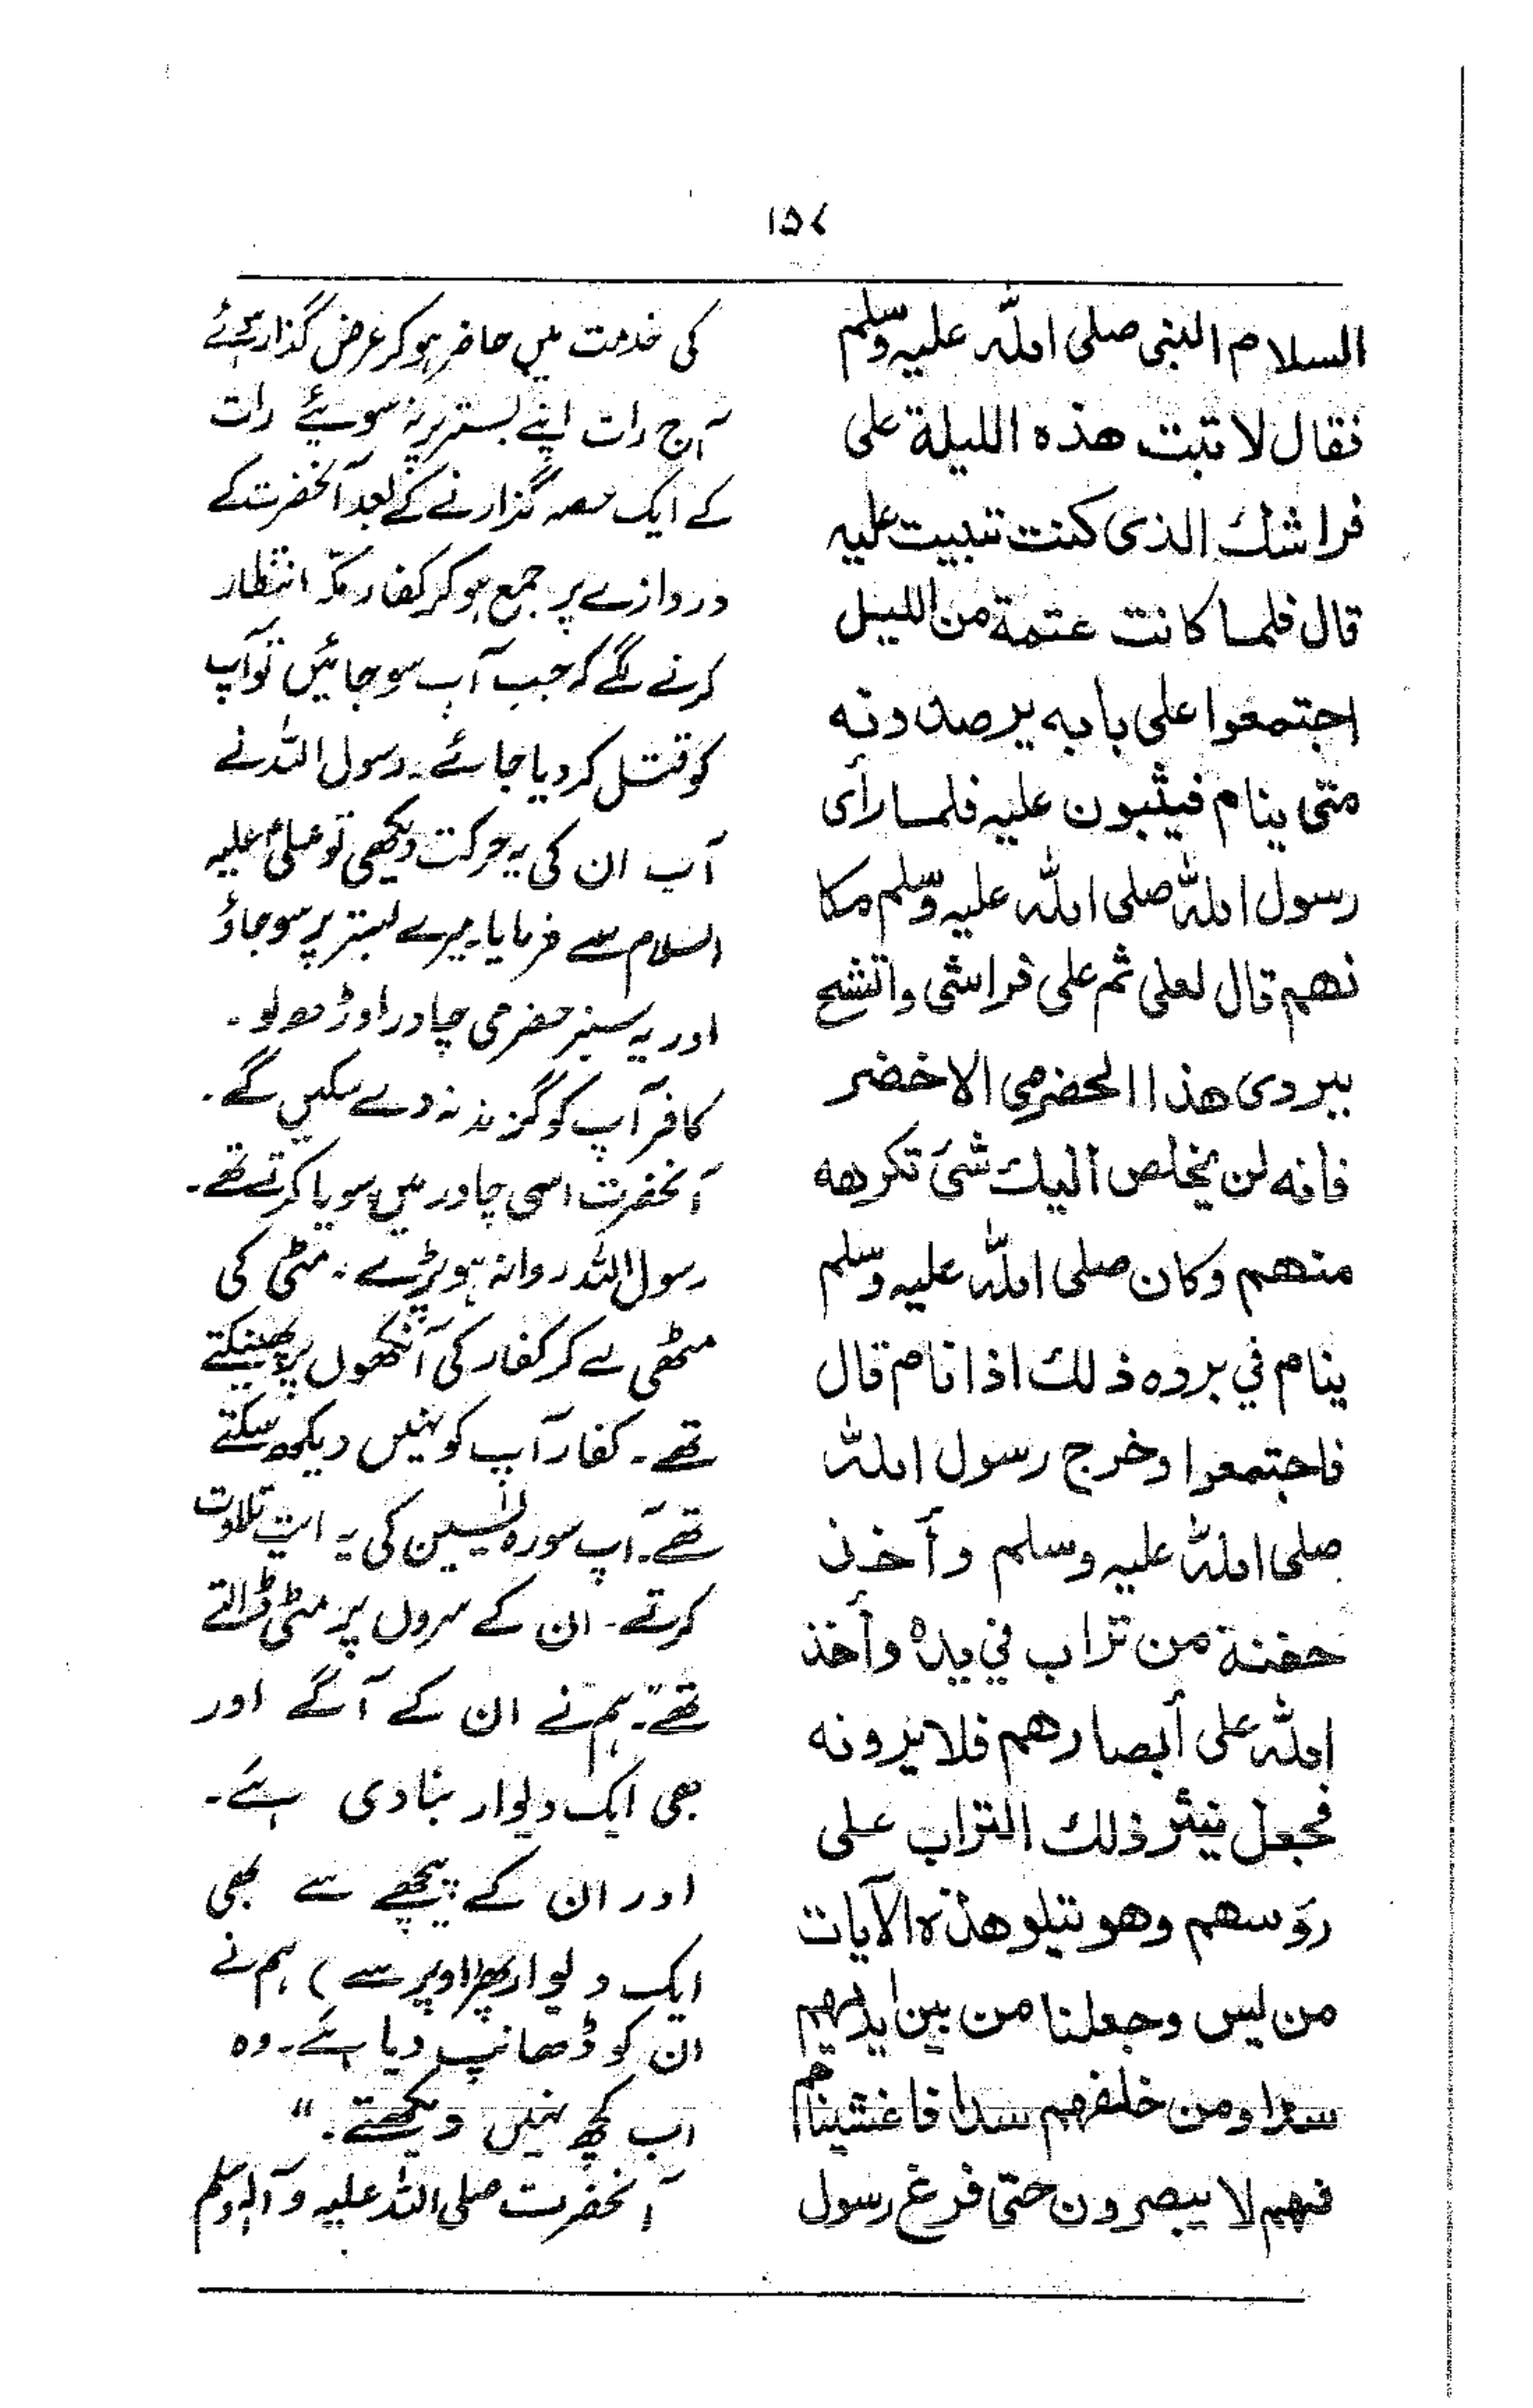 ۱۵۷
السلام النبی صلی اللہ علیہ وسلم
فقال لا تبت ھذہ اللیلة علی
فراشك الذی کنت تبیت علیہ
قال فلما کانت عتمة من اللیل
اجتمعوا علی بابه یرصدونه
متی ینام فیثبون علیہ فلما رأی
رسول اللہ صلی اللہ علیہ وسلم مکا
نھم قال لعلی ثم علی فراشی واتشح
ببردی ھذا الحضرمی الاخضر
فانه لن یخلص الیك شئ تکرھه
منھم وکان صلی اللہ علیہ وسلم
ینام في بردہ ذلك اذا نام قال
فاجتمعوا وخرج رسول اللہ
صلی اللہ علیہ وسلم وأخذ
حفنة من تراب في یدہ وأخذ
اللہ علی أبصارھم فلا یرونه
فجعل ینثر ذلك التراب علی
رؤسھم وھو یتلو ھذہ الآیات
من یس وجعلنا من بین ایدیھم
سدا ومن خلفھم سدا فاغشیناھم
فھم لا یبصرون حتی فرغ رسول
کی خدمت میں حاضر ہو کر عرض گذار ہوئے
آج رات اپنے بستر پر نہ سوئیے رات
کے ایک حصہ گذارنے کے بعد آنحضرت کے
دروازے پر جمع ہو کر کفار مکہ انتظار
کرنے لگے کہ جب آپ سو جائیں تو آپ
کو قتل کر دیا جائے۔ رسول اللہ نے
آپ ان کی یہ حرکت دیکھی تو علی علیہ
السلام سے فرمایا۔ میرے بستر پر سو جاؤ
اور یہ سبز حضرمی چادر اوڑھ لو۔
کافر آپ کو گزند نہ دے سکیں گے۔
آنحضرت اسی چادر میں سویا کرتے تھے۔
رسول اللہ روانہ ہو پڑے۔ مٹی کی
مٹھی لے کر کفار کی آنکھوں پر پھینکتے
تھے۔ کفار آپ کو نہیں دیکھ سکتے
تھے۔ آپ سورہ یٰسین کی یہ ایت تلاوت
کرتے۔ ان کے سروں پر مٹی ڈالتے
تھے۔ "ہم نے ان کے آگے اور
بھی ایک دیوار بنا دی ہے۔
اور ان کے پیچھے سے بھی
ایک دیوار پھر (اوپر سے) ہم نے
ان کو ڈھانپ دیا ہے۔ وہ
اب کچھ نہیں دیکھتے۔"
آنحضرت صلی اللہ علیہ وآلہ وسلم